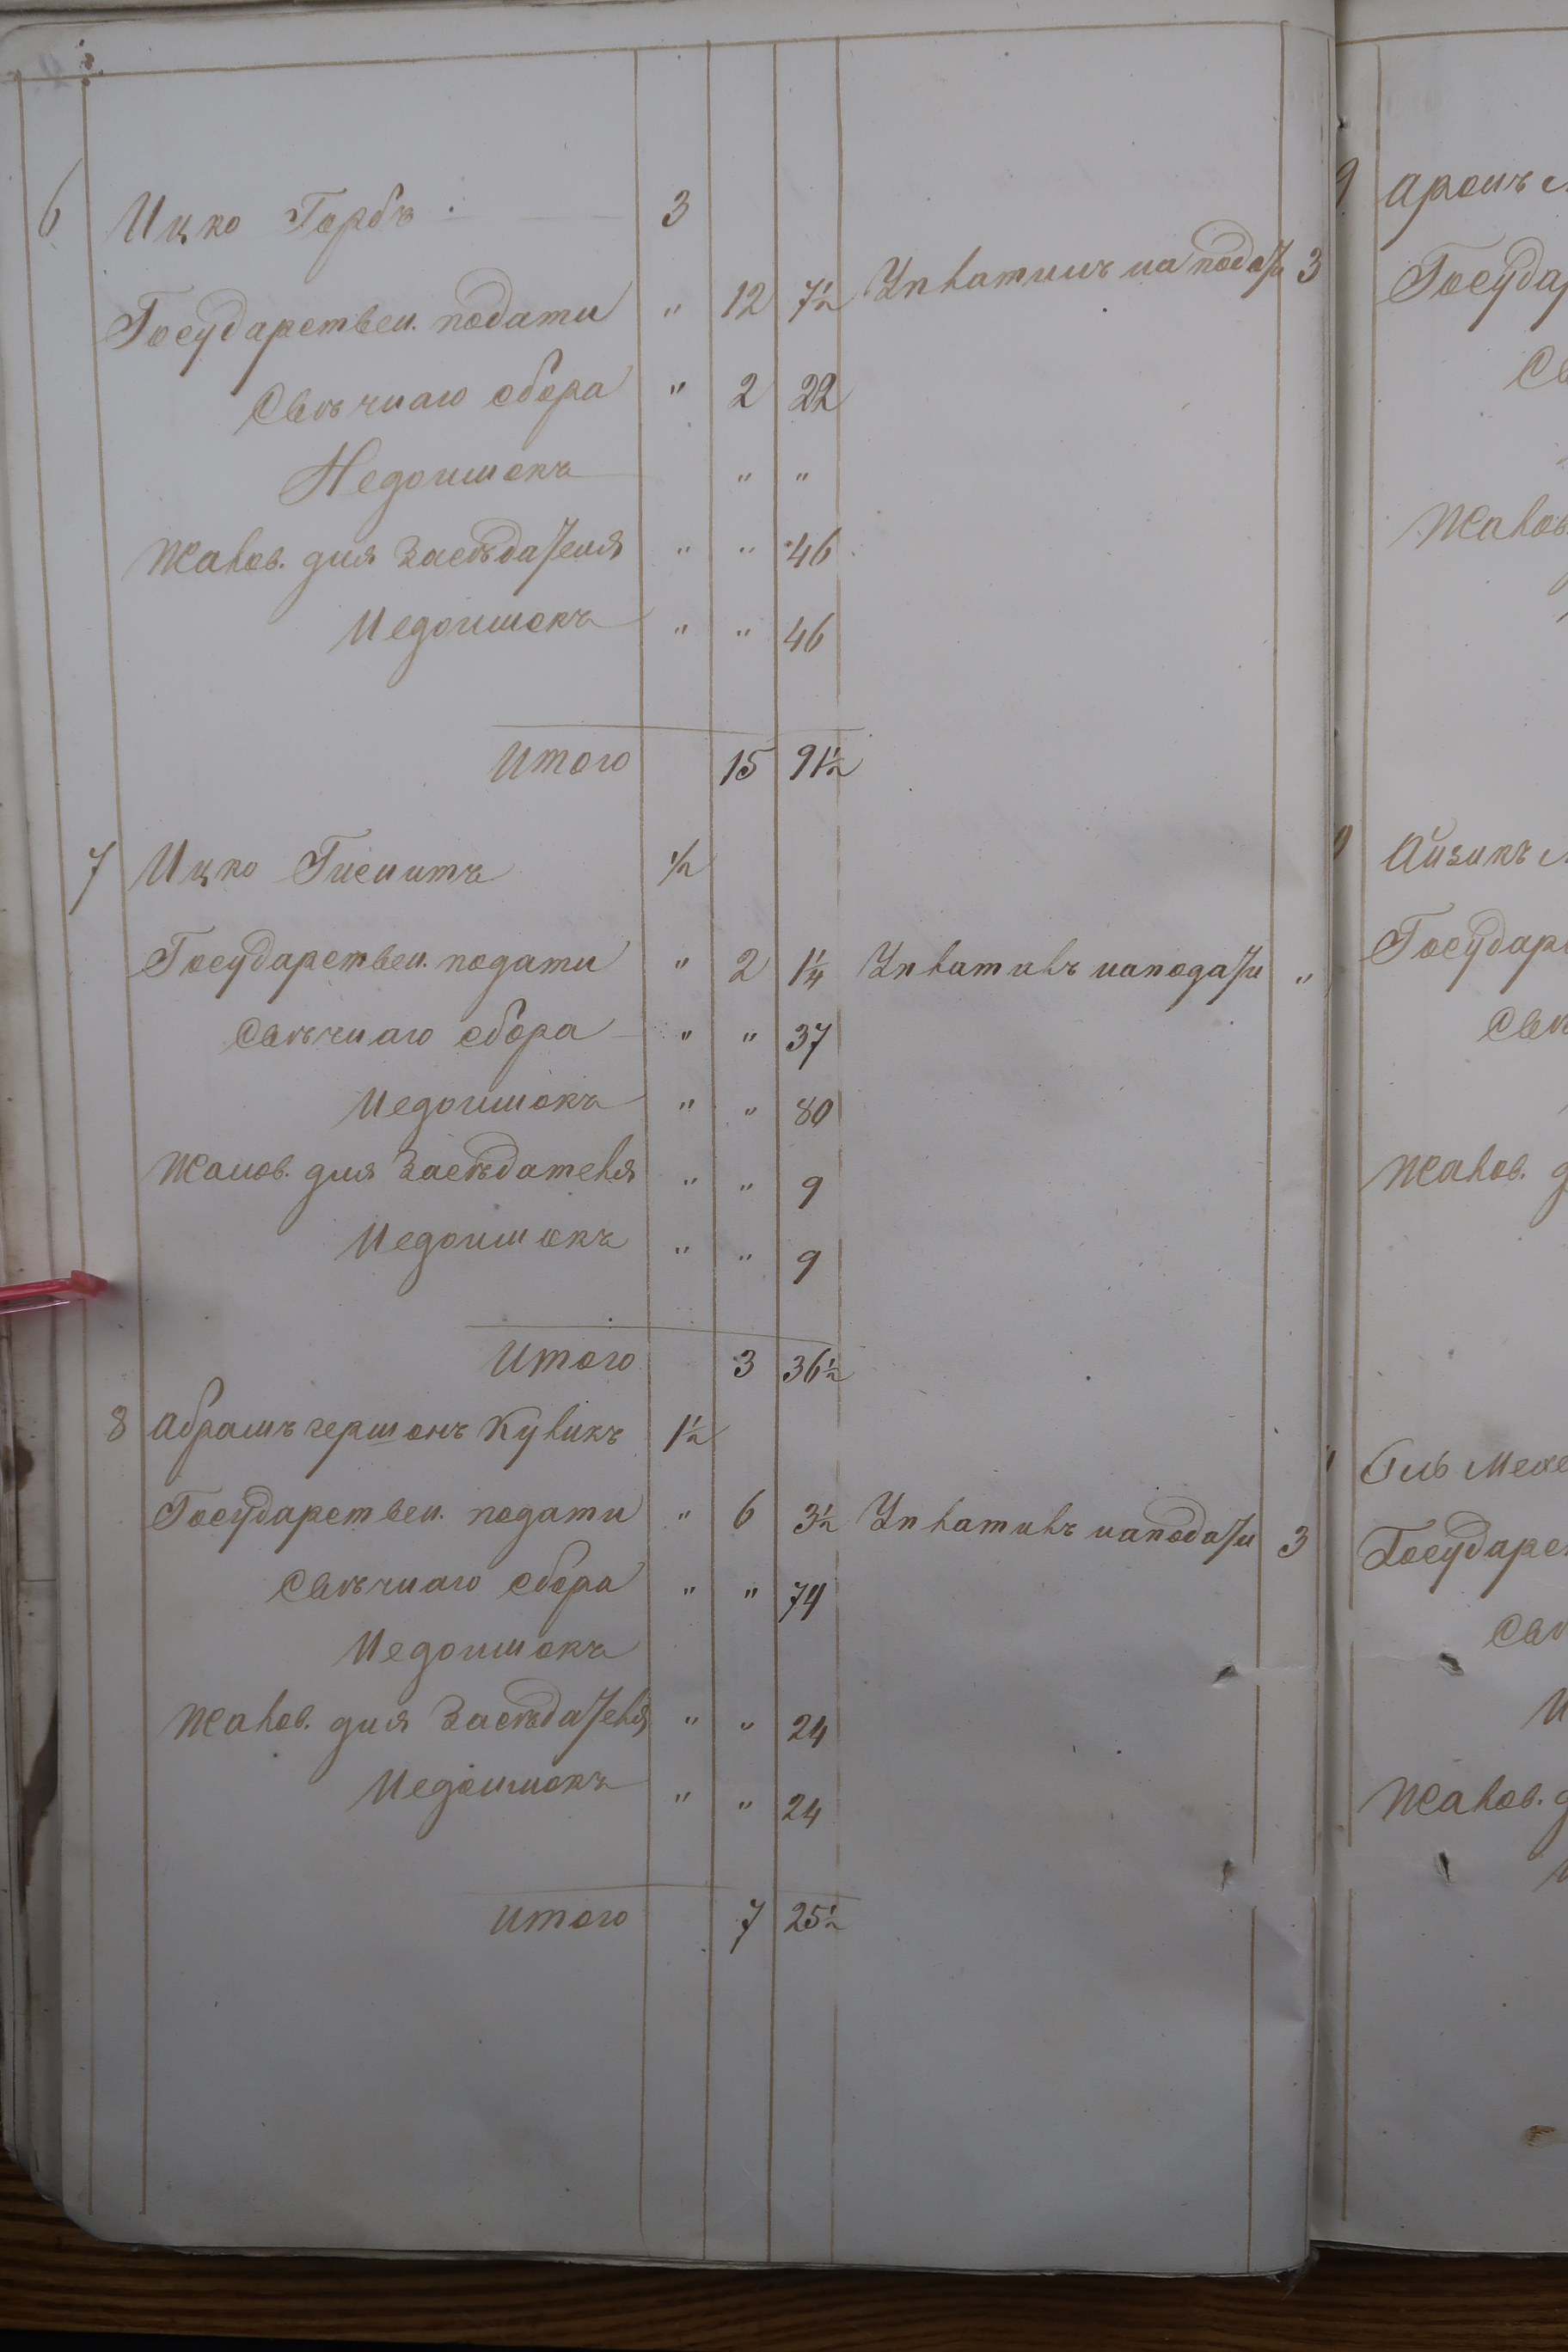 6 Ицко Горбъ 3
Государствен. подати " 12 7½ Уплатилъ на податъ 3
Свѣчнаго сбора " 2 22
Недоимокъ " "
Жалов. для Засѣдателя " " 46
Недоимокъ " " 46
Итого 15 91½
7 Ицко ½
Государствен. подати " 2 1¼ Уплативъ на подати "
Свѣчнаго сбора " " 37
Недоимокъ " " 80
Жалов. для Засѣдателя " " 9
Недоимокъ " " 9
Итого 3 36½
8 Абрамъ Гершонъ Куликъ 1½
Государствен. подати " 6 3½ Уплативъ на подати 3
Свѣчнаго сбора " " 74
Недоимокъ
Жалов. для Засѣдателя " " 24
Недоимокъ " " 24
Итого 7 25½
9 Аронъ
Государ
Св
Жалов.
Айзикъ
Государ
Свѣ
Жалов. д
Государс
Свѣ
Н
Жалов. д